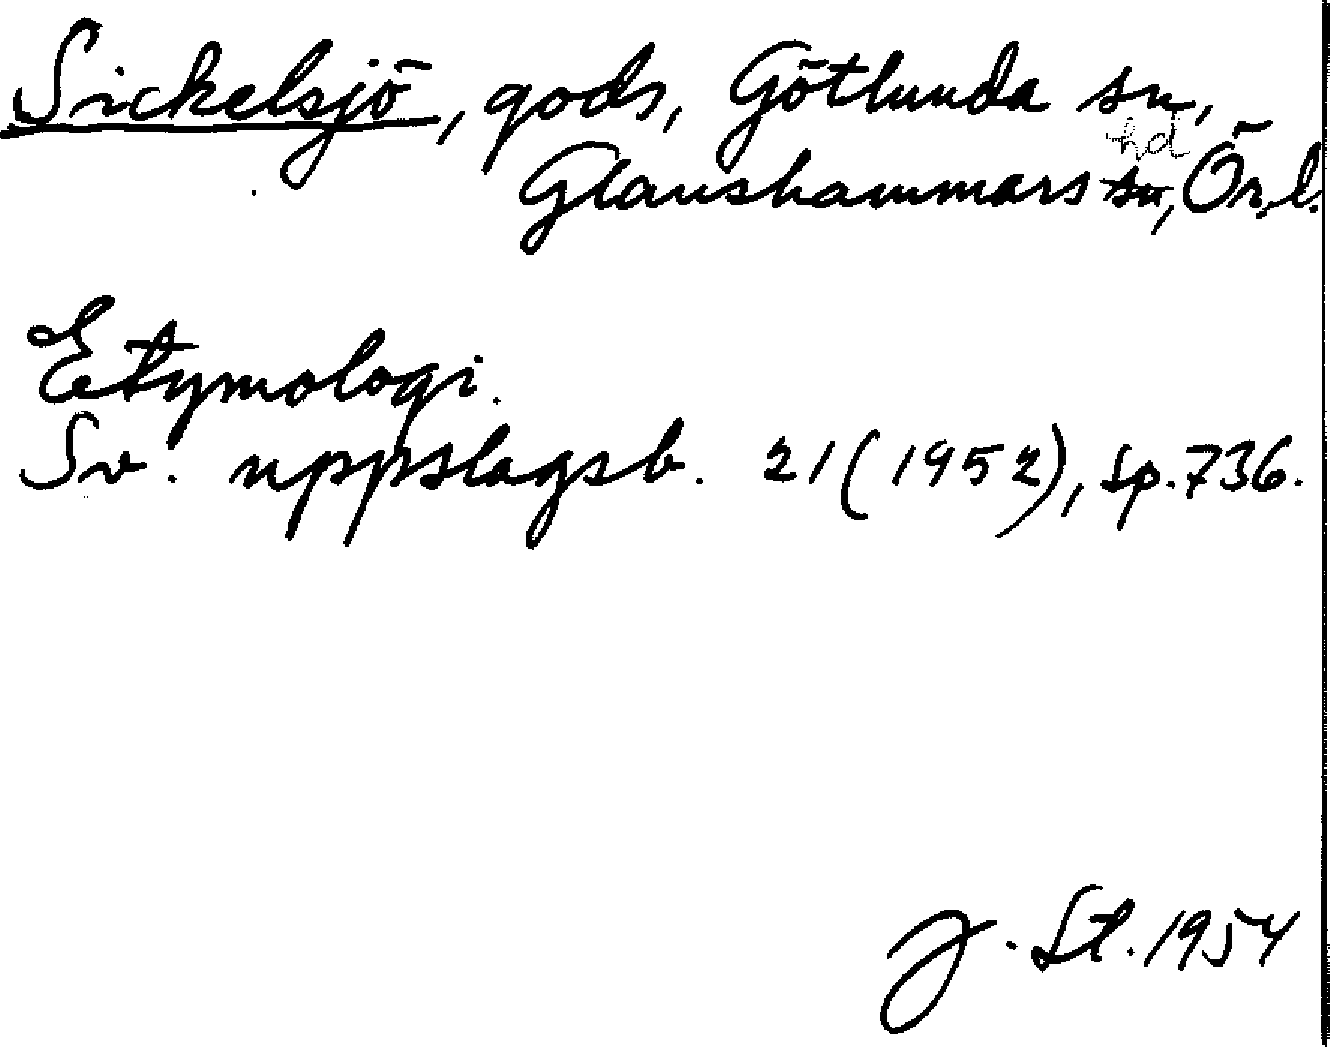 Sickelsjö, gods, Götlunda sn,
Glanshammars hd, Ör. l.
Etymologi.
Sv. uppslagsb. 21 (1952), sp. 736.
J. St. 1954